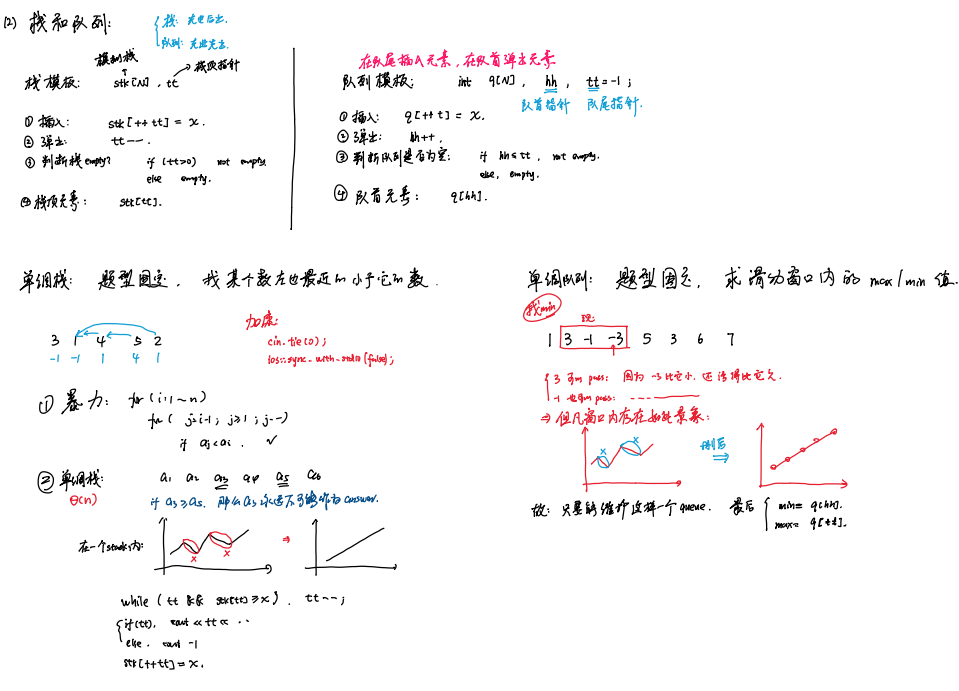 (2) 栈和队列:
栈: 先进后出.
队列: 先进先出.
模拟栈
栈顶指针
栈模板: stk[N], tt
① 插入: stk[++tt] = x.
② 弹出: tt--.
③ 判断栈empty? if (tt>0) not empty
else empty.
④ 栈顶元素: stk[tt].
在队尾插入元素, 在队首弹出元素
队列模板: int q[N], hh, tt=-1;
队首指针 队尾指针.
① 插入: q[++tt] = x.
② 弹出: hh++.
③ 判断队列是否为空: if hh≤tt, not empty.
else, empty.
④ 队首元素: q[hh].
单调栈: 题型固定, 找某个数左边最近的小于它的数.
3 1 4 5 2
-1 -1 1 4 1
加速:
cin.tie(0);
ios::sync_with_stdio(false);
① 暴力: for (i:1~n)
for ( j=i-1; j≥1; j--)
if aj<ai. ✓
② 单调栈: a1 a2 a3 a4 a5 a6
O(n) if a3≥a5, 那么a3永远不可能作为answer.
在一个stack内:
x x
⇒
while (tt && stk[tt]≥x). tt--;
if(tt), cout << tt << ..
else. cout -1
stk[++tt]=x.
单调队列: 题型固定, 求滑动窗口内的max/min值.
找min
1 3 -1 -3 5 3 6 7
3 可以pass: 因为-3比它小, 还活得比它久.
-1 也可以pass: ----
⇒ 但凡窗口内存在如此景象:
x x
删后
⇒
故: 只要能维护这样一个queue. 最后 min= q[hh].
max= q[tt].